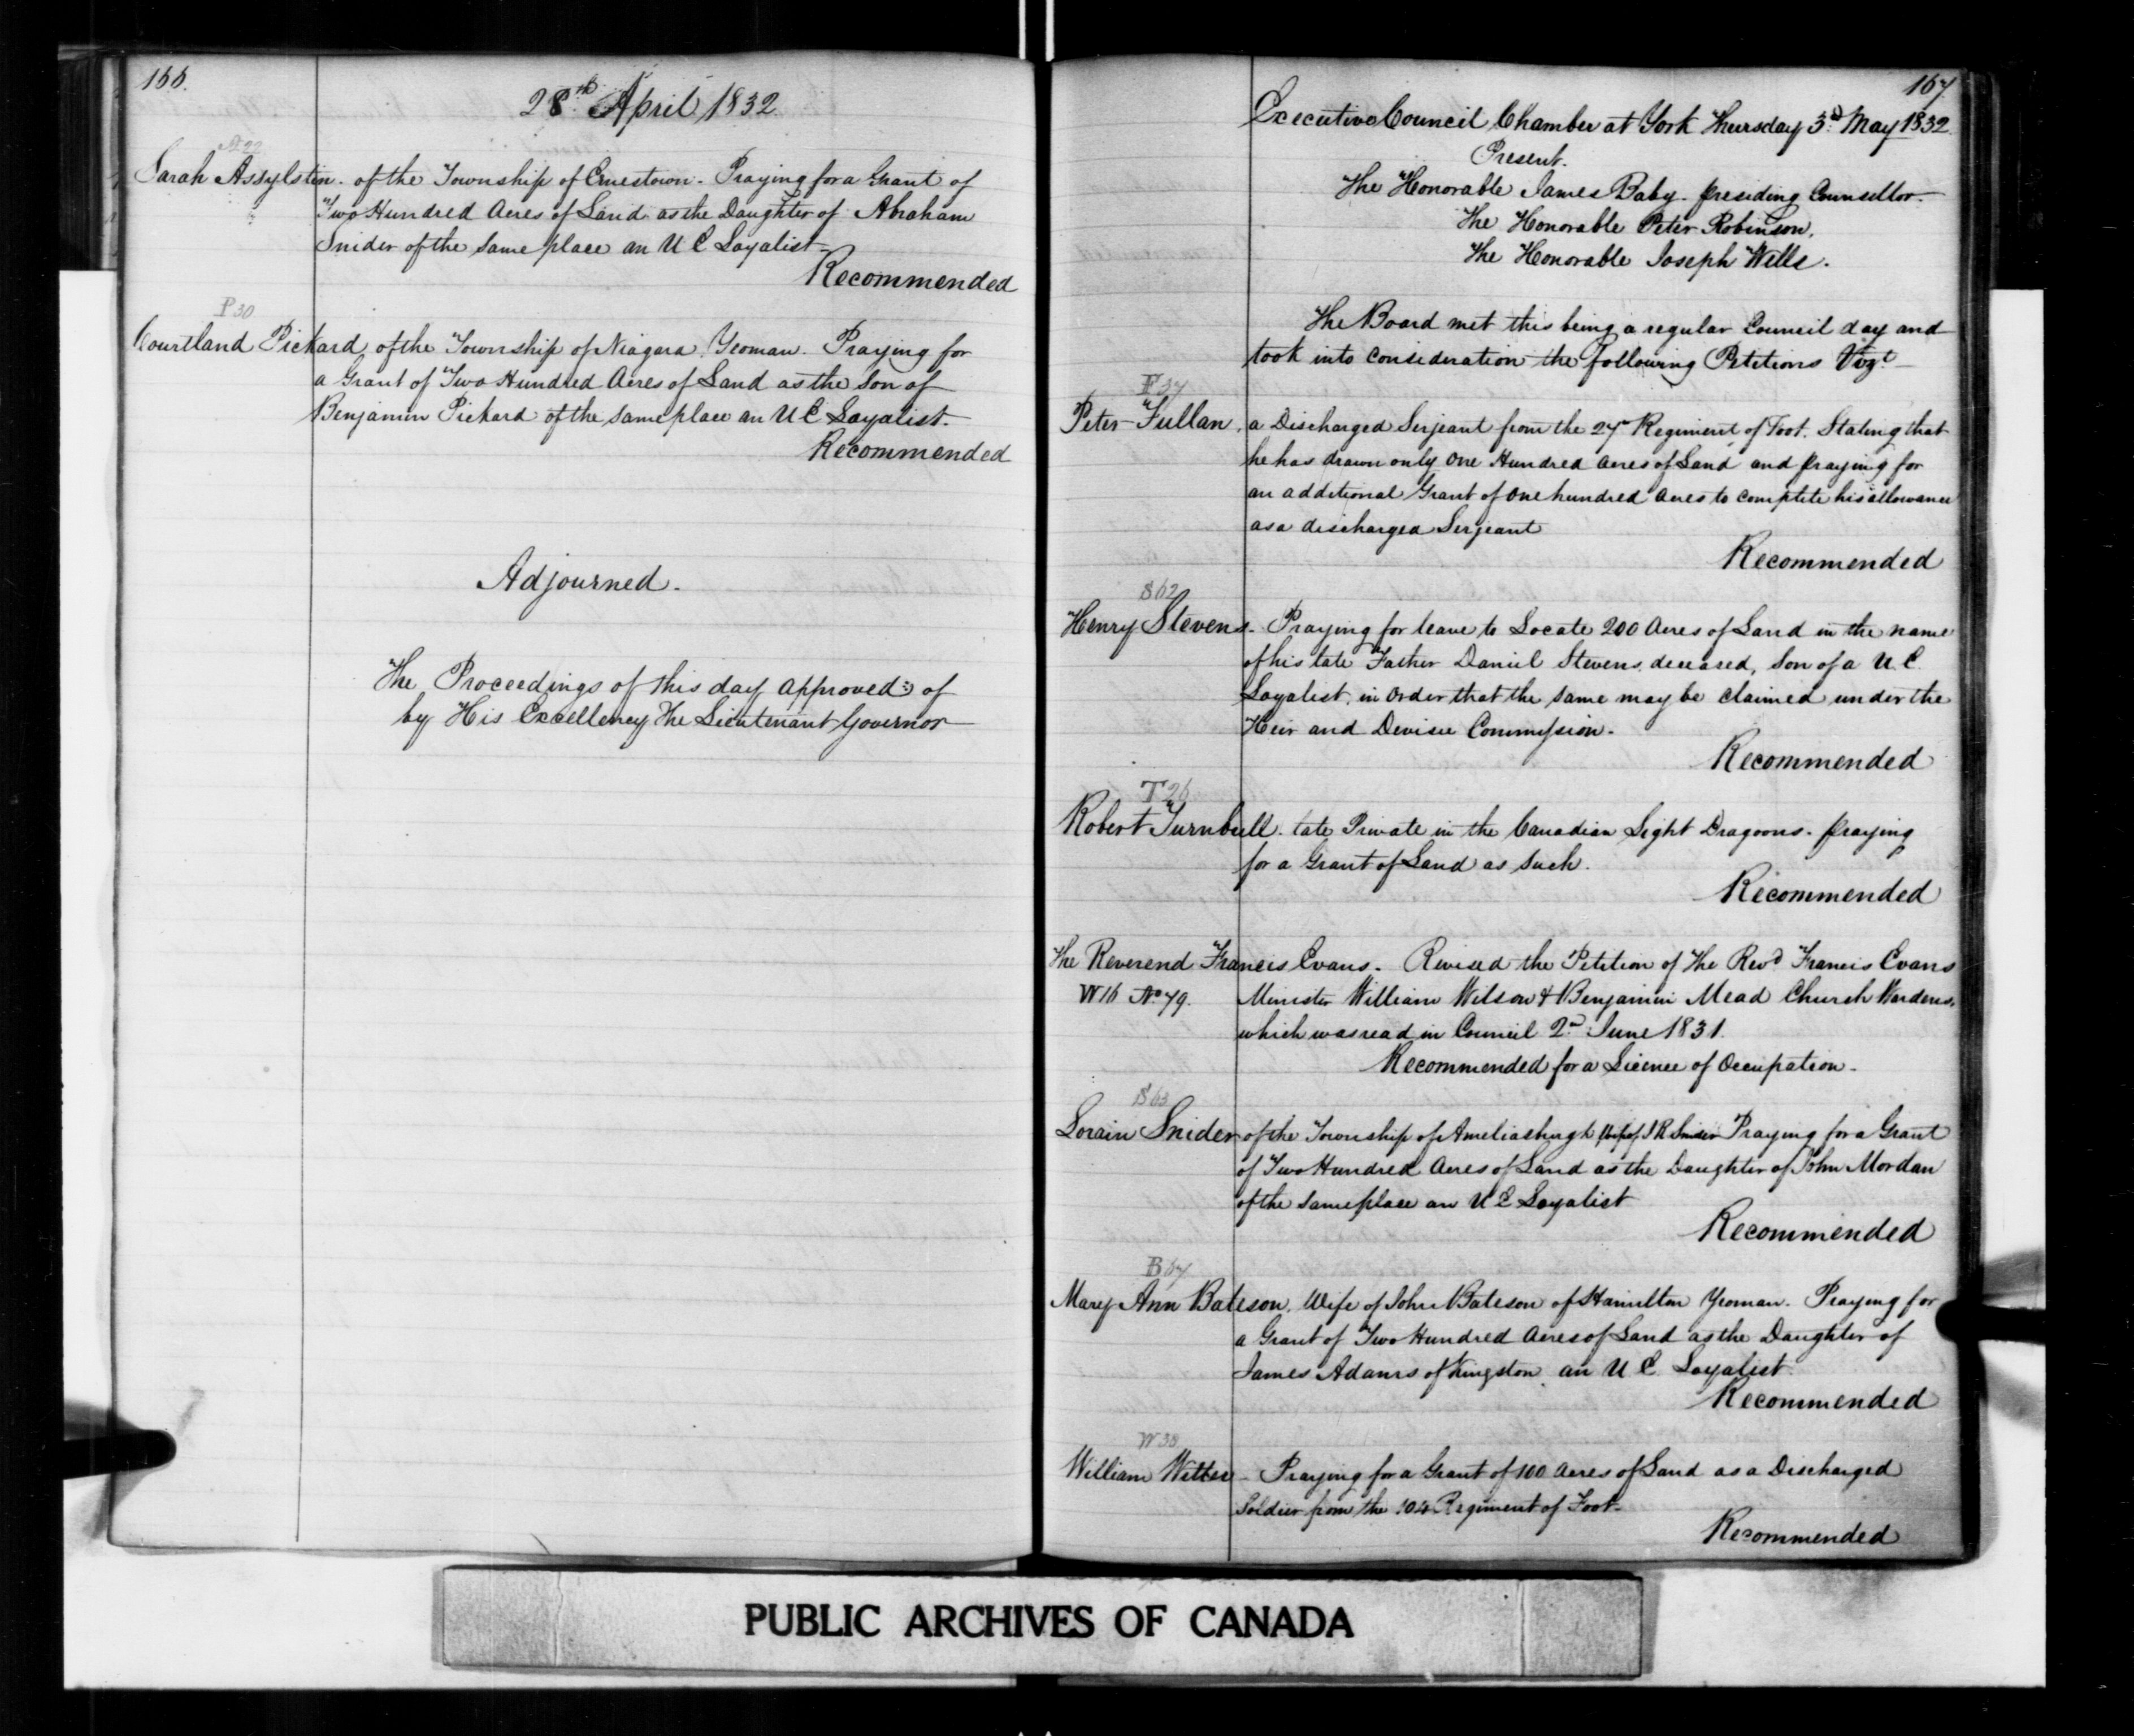 166.
28th April 1832
A 22
Sarah Assylstin. of the Township of Ernestown. Praying for a Grant of
Two Hundred Acres of Land as the Daughter of Abraham
Snider of the same place an U E Loyalist.
Recommended
P 30
Courtland Pickard of the Township of Niagara Yeoman. Praying for
a Grant of Two Hundred Acres of Land as the Son of
Benjamin Pickard of the same place an U E Loyalist.
Recommended
Adjourned.
The Proceedings of this day Approved of
by His Excellency The Lieutenant Governor
167.
Executive Council Chamber at York Thursday 3d May 1832
Present.
The Honorable James Baby. presiding Counsellor.
The Honorable Peter Robinson.
The Honorable Joseph Wells.
The Board met this being a regular Council day and
took into consideration the following Petitions Vizt
F 37
Peter Fullan, a Discharged Serjeant from the 27th Regiment of Foot. Stating that
he has drawn only One Hundred Acres of Land and praying for
an additional Grant of One hundred Acres to complete his allowance
as a discharged Serjeant
Recommended
S 62
Henry Stevens. Praying for leave to Locate 200 Acres of Land in the name
of his late Father Daniel Stevens deceased, Son of a U E
Loyalist, in order that the same may be claimed under the
Heir and Devisee Commission.
Recommended
T 26
Robert Turnbull. late Private in the Canadian Light Dragoons. praying
for a Grant of Land as such.
Recommended
The Reverend Francis Evans. Revised the Petition of The Revd Francis Evans
W 16 No 79. Minister William Wilson & Benjamin Mead Church Wardens,
which was read in Council 2d June 1831.
Recommended for a Licence of Occupation.
S 63
Lorain Snider of the Township of Ameliasburgh Wife of J R Snider Praying for a Grant
of Two Hundred Acres of Land as the Daughter of John Mordan
of the same place an U E Loyalist
Recommended
B 67
Mary Ann Bateson, Wife of John Bateson of Hamilton Yeoman. Praying for
a Grant of Two Hundred Acres of Land as the Daughter of
James Adams of Kingston an U E Loyalist.
Recommended
W 38
William Witter Praying for a Grant of 100 Acres of Land as a Discharged
Soldier from the 104 Regiment of Foot.
Recommended
PUBLIC ARCHIVES OF CANADA